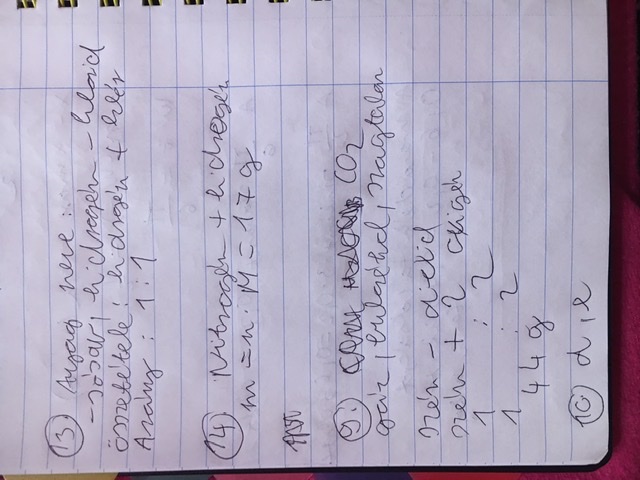 13 Anyag neve:
- sósav, hidrogén-klorid
összetétele: hidrogén + klór
Arány: 1:1
14 Nitrogén + hidrogén
m = n · M = 17 g
9. CO2
gáz, színtelen, szagtalan
szén-dioxid
szén + 2 oxigén
1 : 2
1 : 2
44 g
10 d, e